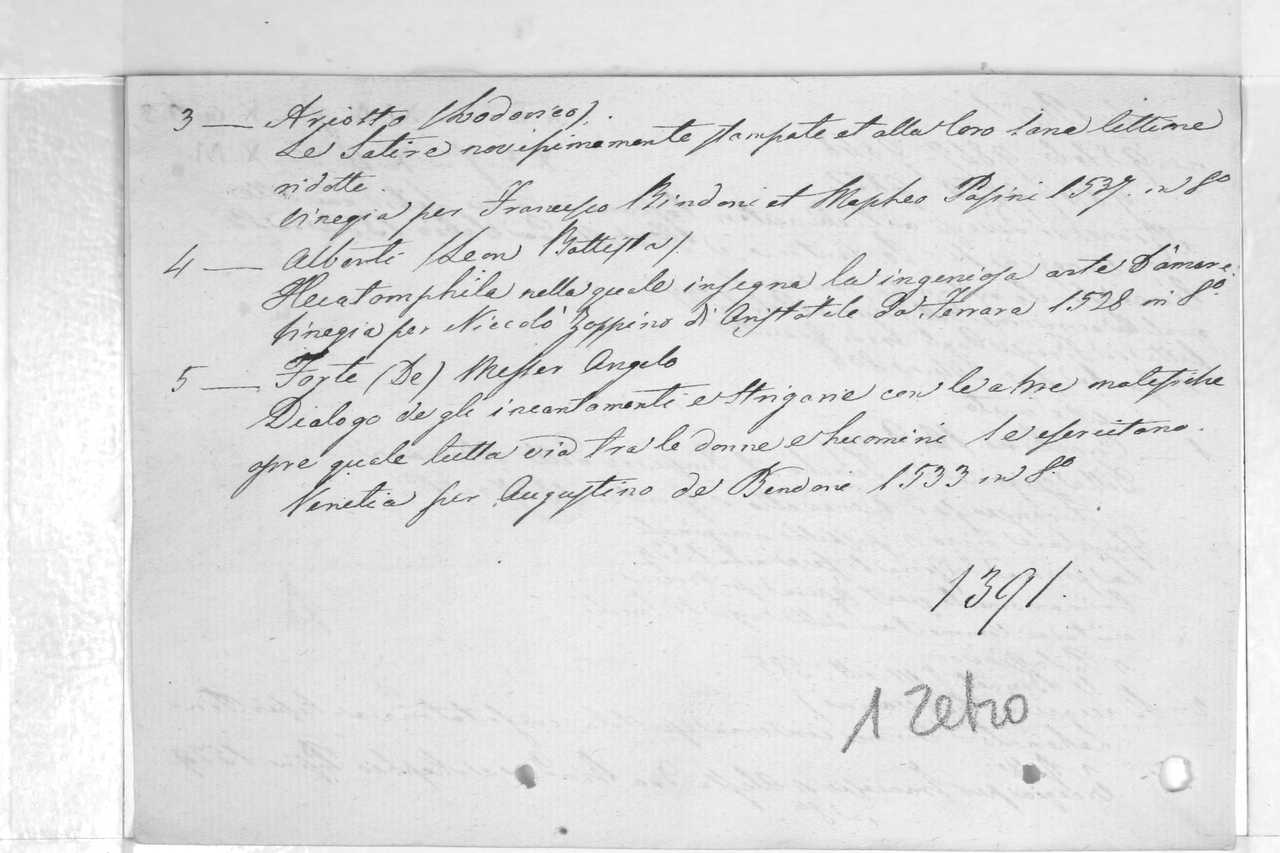 3 — Ariosto (Lodovico).
Le Satire novissimamente stampate et alla loro sana lettione
ridotte.
Vinegia per Francesco Bindoni et Mapheo Pasini 1537. in 8º
4 — Alberti (Leon Battista).
Hecatomphila nella quale insegna la ingeniosa arte D'amore.
Vinegia per Niccolò Zoppino di Aristotile Da Ferrara 1528 in 8º.
5 — Forte (De) Messer Angelo
Dialogo de gli incantamenti e strigarie con le altre malefiche
opre quale tutta via tra le donne e huomini se esercitano.
Venetia per Augustino de Bendoni 1533 in 8º
1391.
1 retro